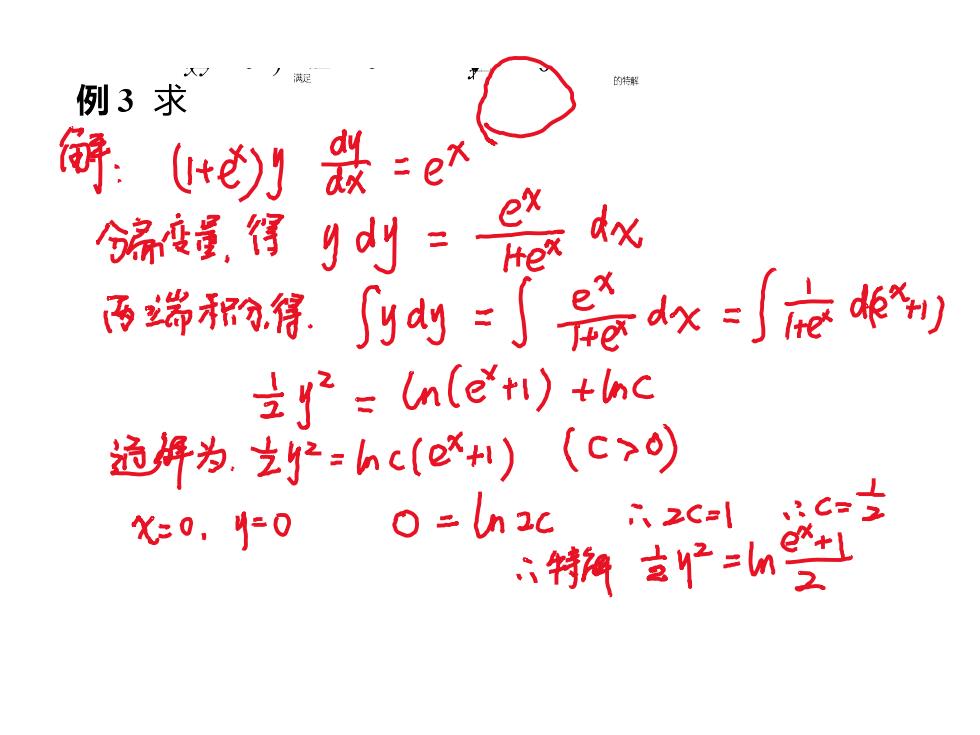 满足 的特解
例 3 求
解: (1+e^x)y dy/dx = e^x
分离变量, 得 y dy = e^x/(1+e^x) dx
两端积分, 得. ∫y dy = ∫ e^x/(1+e^x) dx = ∫ 1/(1+e^x) d(e^x+1)
1/2 y² = ln(e^x+1) + lnC
通解为. 1/2 y² = ln c(e^x+1) (C>0)
x=0, y=0 0 = ln 2C ∴ 2C=1 ∴ C=1/2
∴ 特解 1/2 y² = ln (e^x+1)/2